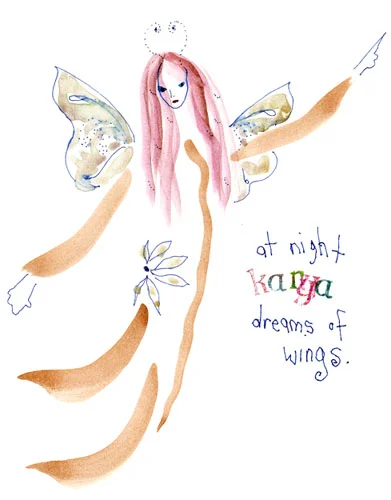 at night
karya
dreams of
wings.